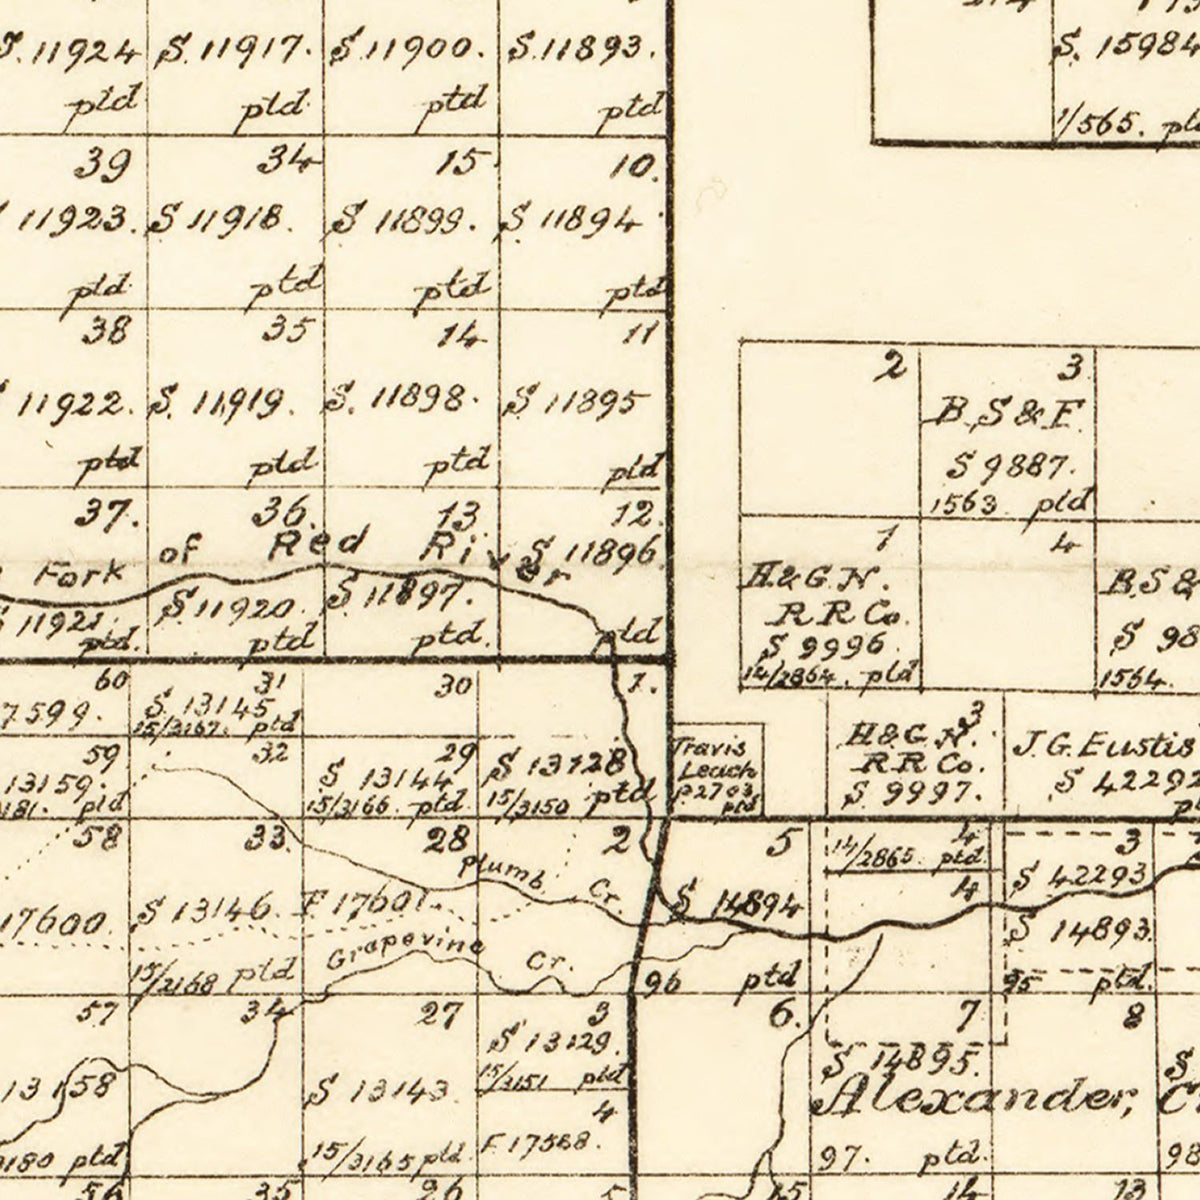 S. 11924 S. 11917. S 11900. S. 11893.
ptd ptd ptd ptd
S. 15984
1/565. ptd
39 34 15 10.
11923. S 11918. S 11899. S 11894
ptd ptd ptd ptd
38 35 14 11
11922. S. 11919. S. 11898. S 11895
ptd ptd ptd ptd
37. 36. 13 12.
Fork of Red River
S 11896
11921. S 11920. S 11897.
ptd. ptd ptd. ptd
2 3
B. S & F.
S 9887.
1563 ptd
1 4
H & G. N.
R R Co.
S 9996.
14/2864. ptd
B. S &
S 98
1564.
60 31 30 1.
7599. S. 13145
15/3167. ptd
59 32 29
13159. S 13144 S 13128
ptd 15/3166. ptd. 15/3150 ptd
Travis
Leach
P 2703
ptd
3
H & G. N.
R R Co.
S 9997.
J. G. Eustis
S 42292
58 33. 28 2 5 4 3
14/2865 ptd.
4
Plumb Cr.
17600. S 13146. F 17601.
S 14894
S 42293
S 14893.
Grapevine Cr.
15/3168 ptd
96 ptd
95 ptd.
57 34 27 3 6. 7 8
S 13129.
15/3151 ptd
S 14895.
Alexander,
13158 S 13143.
4
F. 17568.
3180 ptd 15/3165 ptd.
97. ptd. 98
56 35 26 5 15 14 13